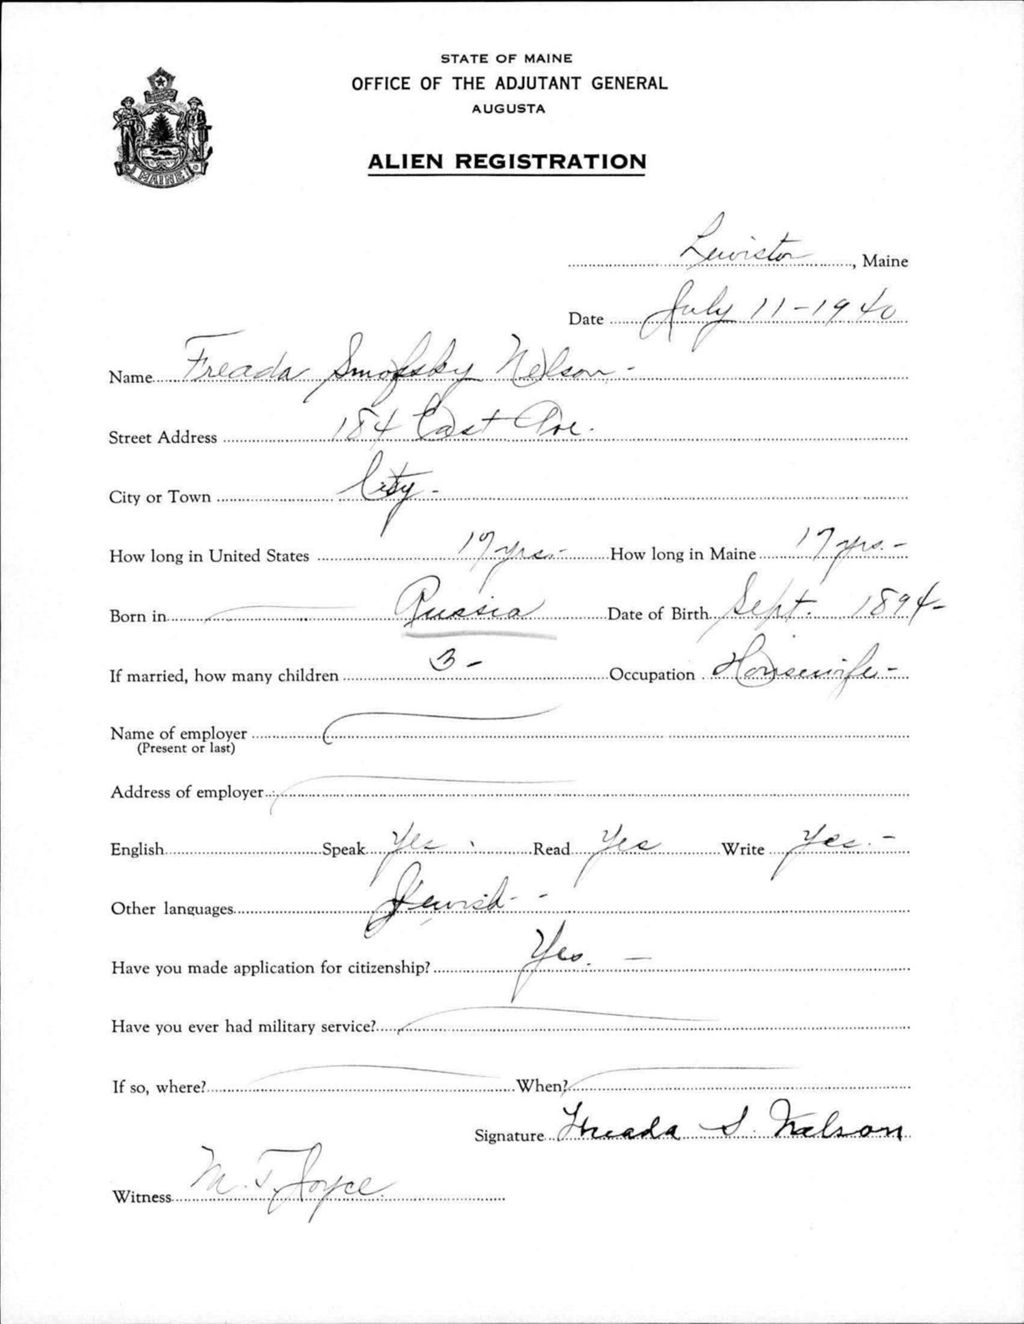 STATE OF MAINE
OFFICE OF THE ADJUTANT GENERAL
AUGUSTA
MAINE
ALIEN REGISTRATION
Lewiston, Maine
Date July 11-1940
Name Freada Smofsky Nelson-
Street Address 184 East Ave.
City or Town City-
How long in United States yrs.- How long in Maine 17 yrs.-
Born in Russia Date of Birth Sept. 1894-
If married, how many children 3- Occupation Housewife-
Name of employer
(Present or last)
Address of employer
English Speak Yes Read Yes Write Yes.-
Other languages Jewish-
Have you made application for citizenship? Yes. -
Have you ever had military service?
If so, where? When?
Signature Freada S. Nelson
Witness M. T. Joyce